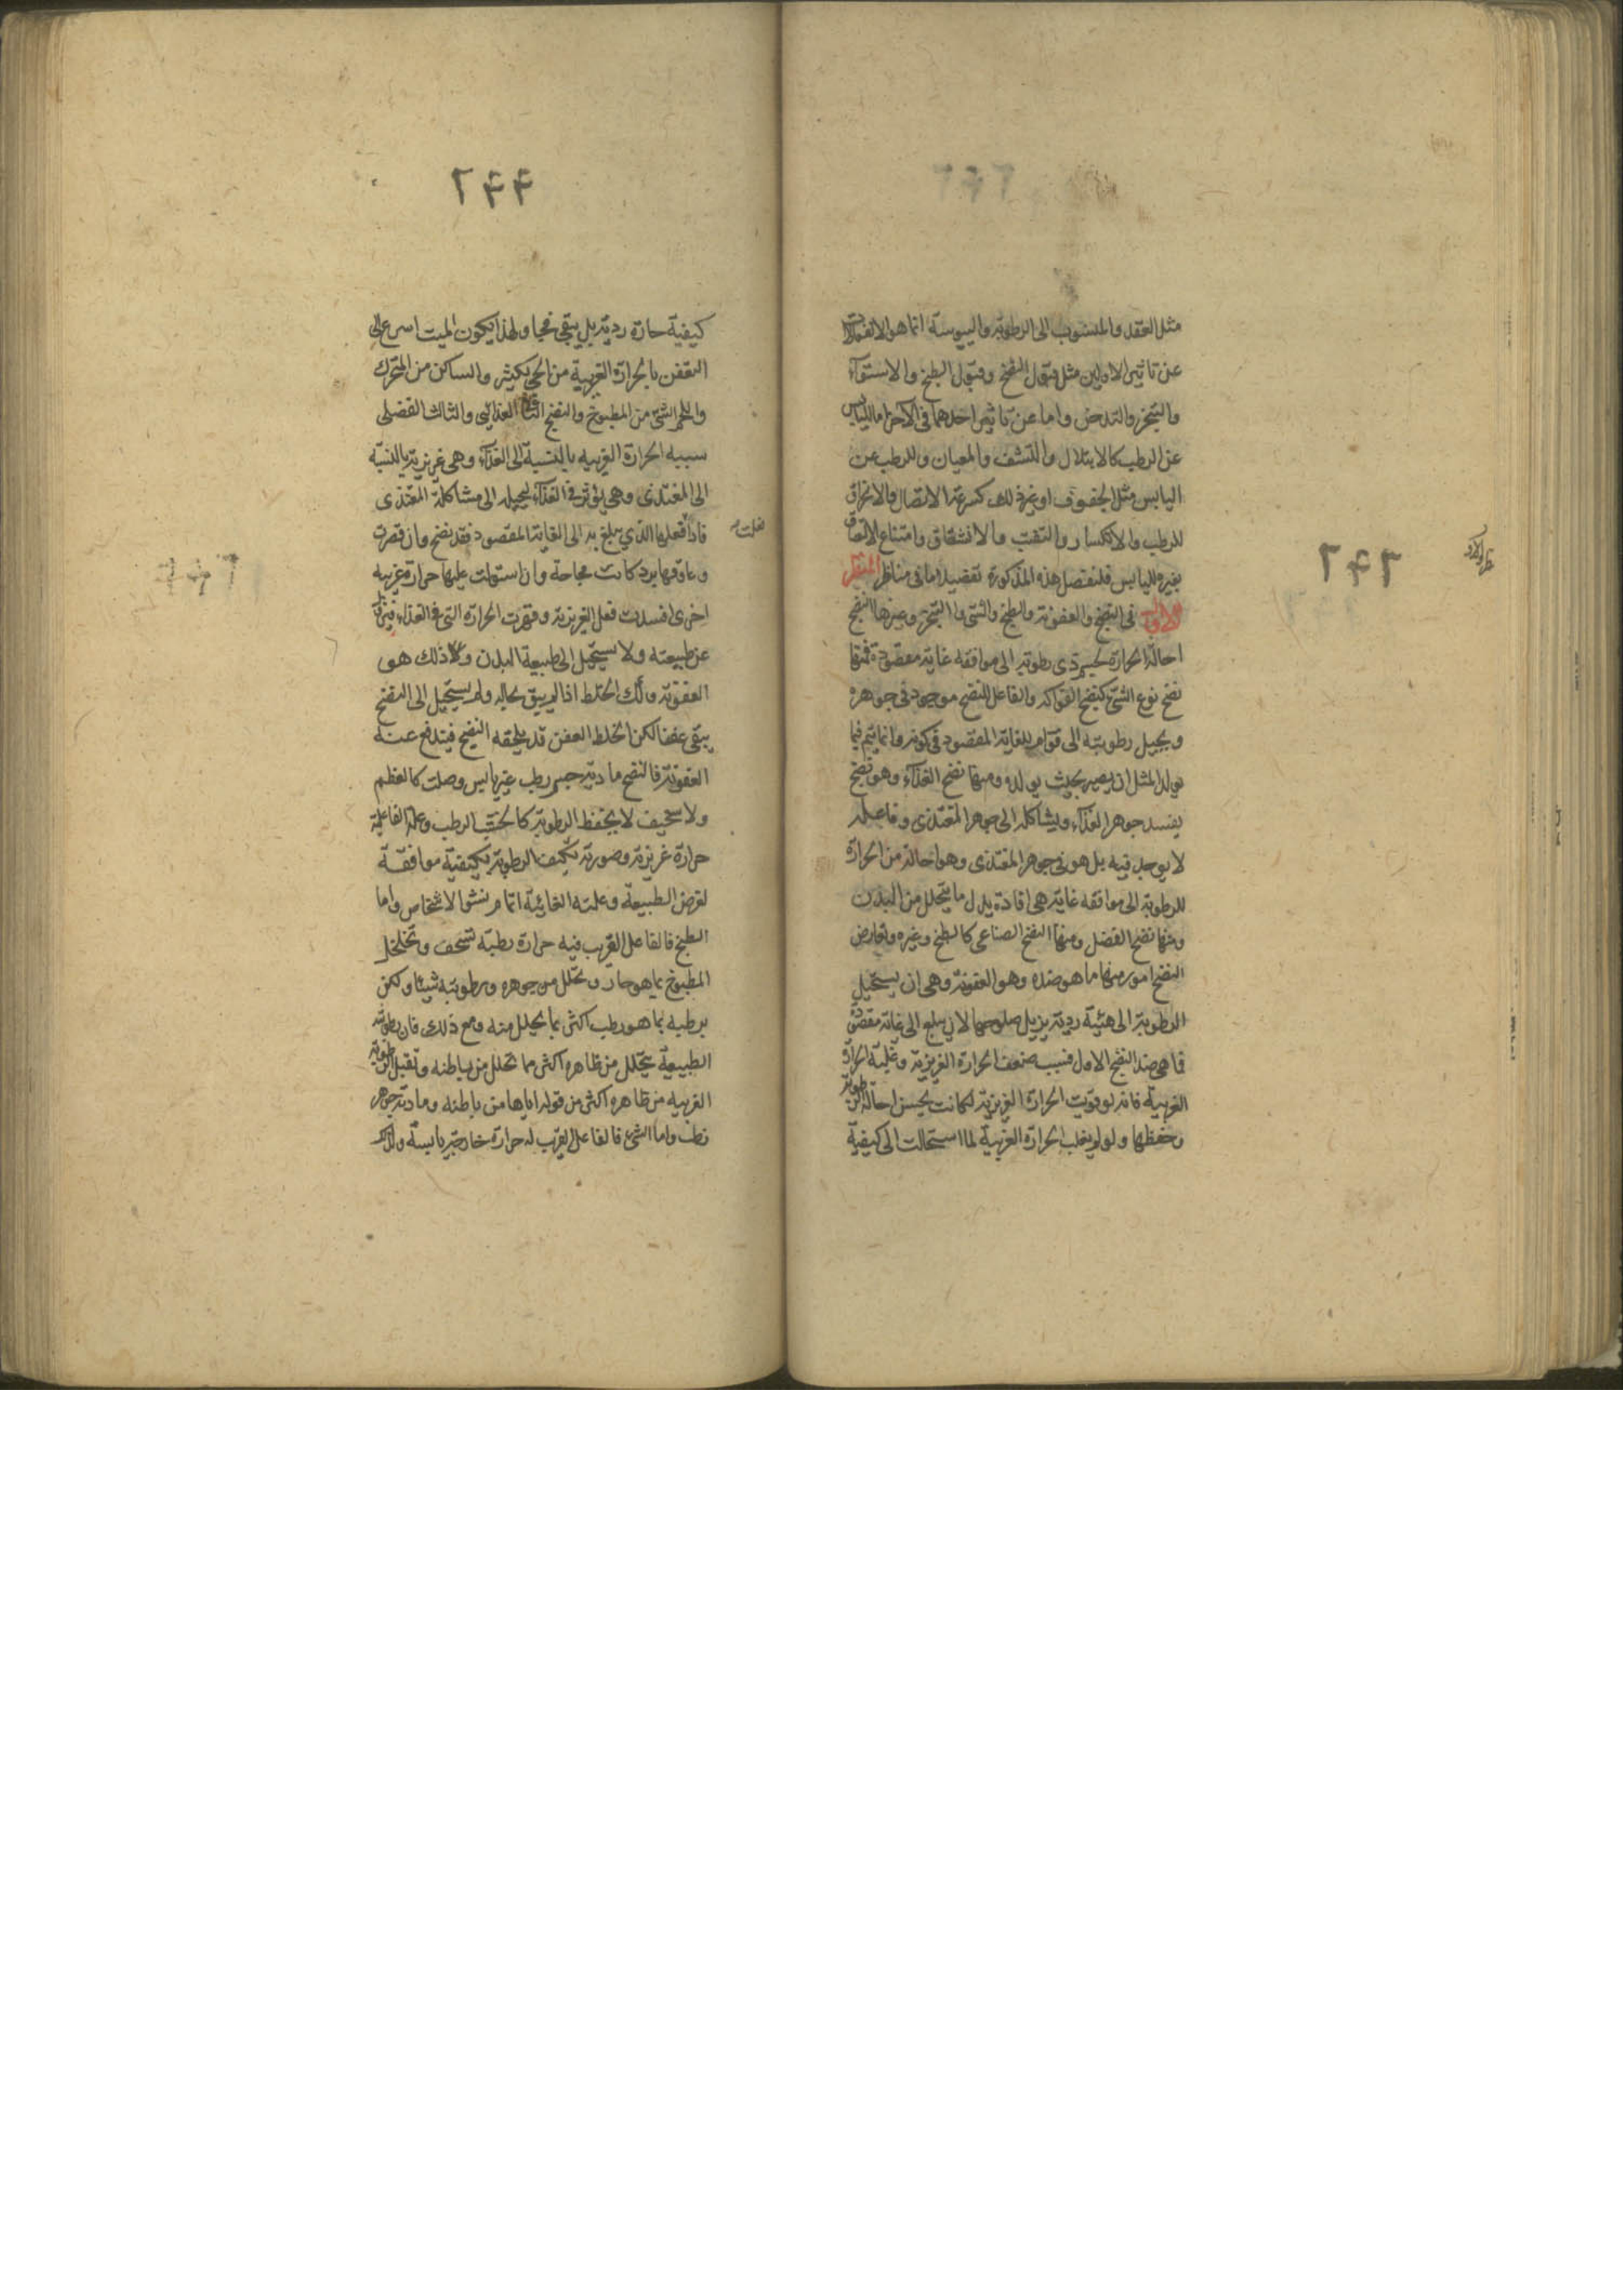 مثل العقد والمنسوب الى الرطوبة واليبوسة انما هو الانفعالات
عن تاثير الاولين مثل قبول النضج وقبول الطبخ والاستواء
والتبخر والتدخن واما عن تاثير احدهما فى الآخر اما لليابس
عن الرطب كالابتلال والنشف والميعان وللرطب عن
اليابس مثل الجفوف او غير ذلك كسرعة الاتصال والانخراق
للرطب والانكسار والتفتت والانشقاق وامتناع الالتصاق
بغيره لليابس فلنفصل هذه المذكورة تفصيلا ما فى مناظر المنظر
الاول فى النضج والعفونة والطبخ والشى والتبخر وغيرها النضج
احالة الحرارة لجسم ذى رطوبة الى موافقه غاية مقصودة فمنها
نضج نوع الشئ كنضج الفواكه والفاعل للنضج موجود فى جوهره
ويحيل رطوبته الى قوام للغاية المقصود فى كونه وانما يتم فيما
يولد المثل ان يصير بحيث يولده ومنها نضج الغذاء وهو نضج
يفسد جوهر الغذاء ويشاكله الى جوهر المغتذى وفاعله
لا يوجد فيه بل هو فى جوهر المغتذى وهو احالة من الحرارة
للرطوبة الى موافقه غاية هى افادة بدل ما يتحلل من البدن
ومنها نضج الفضل ومنها النضج الصناعى كالطبخ وغيره وتعارض
النضج امور منها ما هو ضده وهو العفونة وهى ان يستحيل
الرطوبة الى هيئة ردية يزيل صلوحها لان يبلغ الى غاية مقصودة
فما هى ضد النضج الاول فبسبب ضعف الحرارة الغريزية وغلبة الحرارة
الغريبة فانه لو قويت الحرارة الغريزية لكانت يحسن احالة الرطوبة
وحفظها ولو لم يغلب الحرارة الغريبة لما استحالت الى كيفية
٢۴۳
۲۴۴
كيفية حارة ردية بل يبقى فجا ولهذا يكون الميت اسرع الى
التعفن بالحرارة الغريبة من الحى بكثير والساكن من المتحرك
واللحم الشئ من المطبوخ والنضج الثانى الغذائى والثالث الفضلى
سببه الحرارة الغريبه بالنسبة الى الغذاء وهى غريزية بالنسبة
الى المغتذى وهى يؤثر فى الغذاء ليحيله الى مشاكلة المغتذى
فاذا فعلها الذى يبلغ به الى الغاية المقصود فقد نضج وان قصرت
وعاوقها برد كانت فجاجة وان استولت عليها حرارة غريبه
اخرى افسدت فعل الغريزية وقهرت الحرارة التى فى الغذاء فيزل
عن طبيعته ولا يستحيل الى طبيعة البدن وكل ذلك هو
العفونة وكك الخلط اذا لم يبق بحاله ولم يستحيل الى النضج
يبقى عفنا لكن الخلط العفن قد يلحقه النضج فيندفع عنه
العفونة فالنضج مادته جسم رطب غير يابس وصلت كالعظم
ولا سخيف لا يحفظ الرطوبة كالخشب الرطب وعلته الفاعلية
حرارة غريزية وصورته تكيف الرطوبة بكيفية موافقة
لغرض الطبيعة وعلته الغائية اتمام نشو الاشخاص واما
الطبخ فالفاعل القريب فيه حرارة رطبة تسخف وتخلخل
المطبوخ بما هو حار وتحلل من جوهره ورطوبته شيئا ولكن
يرطبه بما هو رطب اكثر بما يحلل منه ومع ذلك فان رطوبته
الطبيعية يتحلل من ظاهره اكثر مما تحلل من باطنه وتقبل الرطوبة
الغريبه من ظاهره اكثر من قوله اياها من باطنه ومادته جوهر
رطب واما الشئ فالفاعل القريب له حرارة خارجية يابسة ولذلك